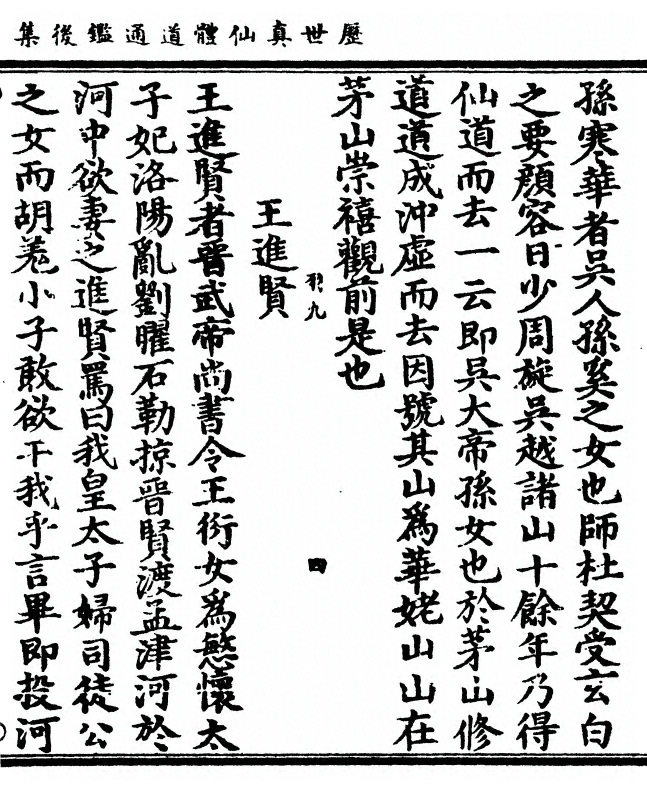 歷世真仙體道通鑑後集
孫寒華者吳人孫奚之女也師杜契受玄白
之要顏容日少周旋吳越諸山十餘年乃得
仙道而去一云即吳大帝孫女也於茅山修
道道成沖虛而去因號其山爲華姥山山在
茅山崇禧觀前是也
九
四
王進賢
王進賢者晉武帝尚書令王衍女爲愍懷太
子妃洛陽亂劉曜石勒掠晉賢渡孟津河於
河中欲妻之進賢罵曰我皇太子婦司徒公
之女而胡羌小子敢欲干我乎言畢即投河